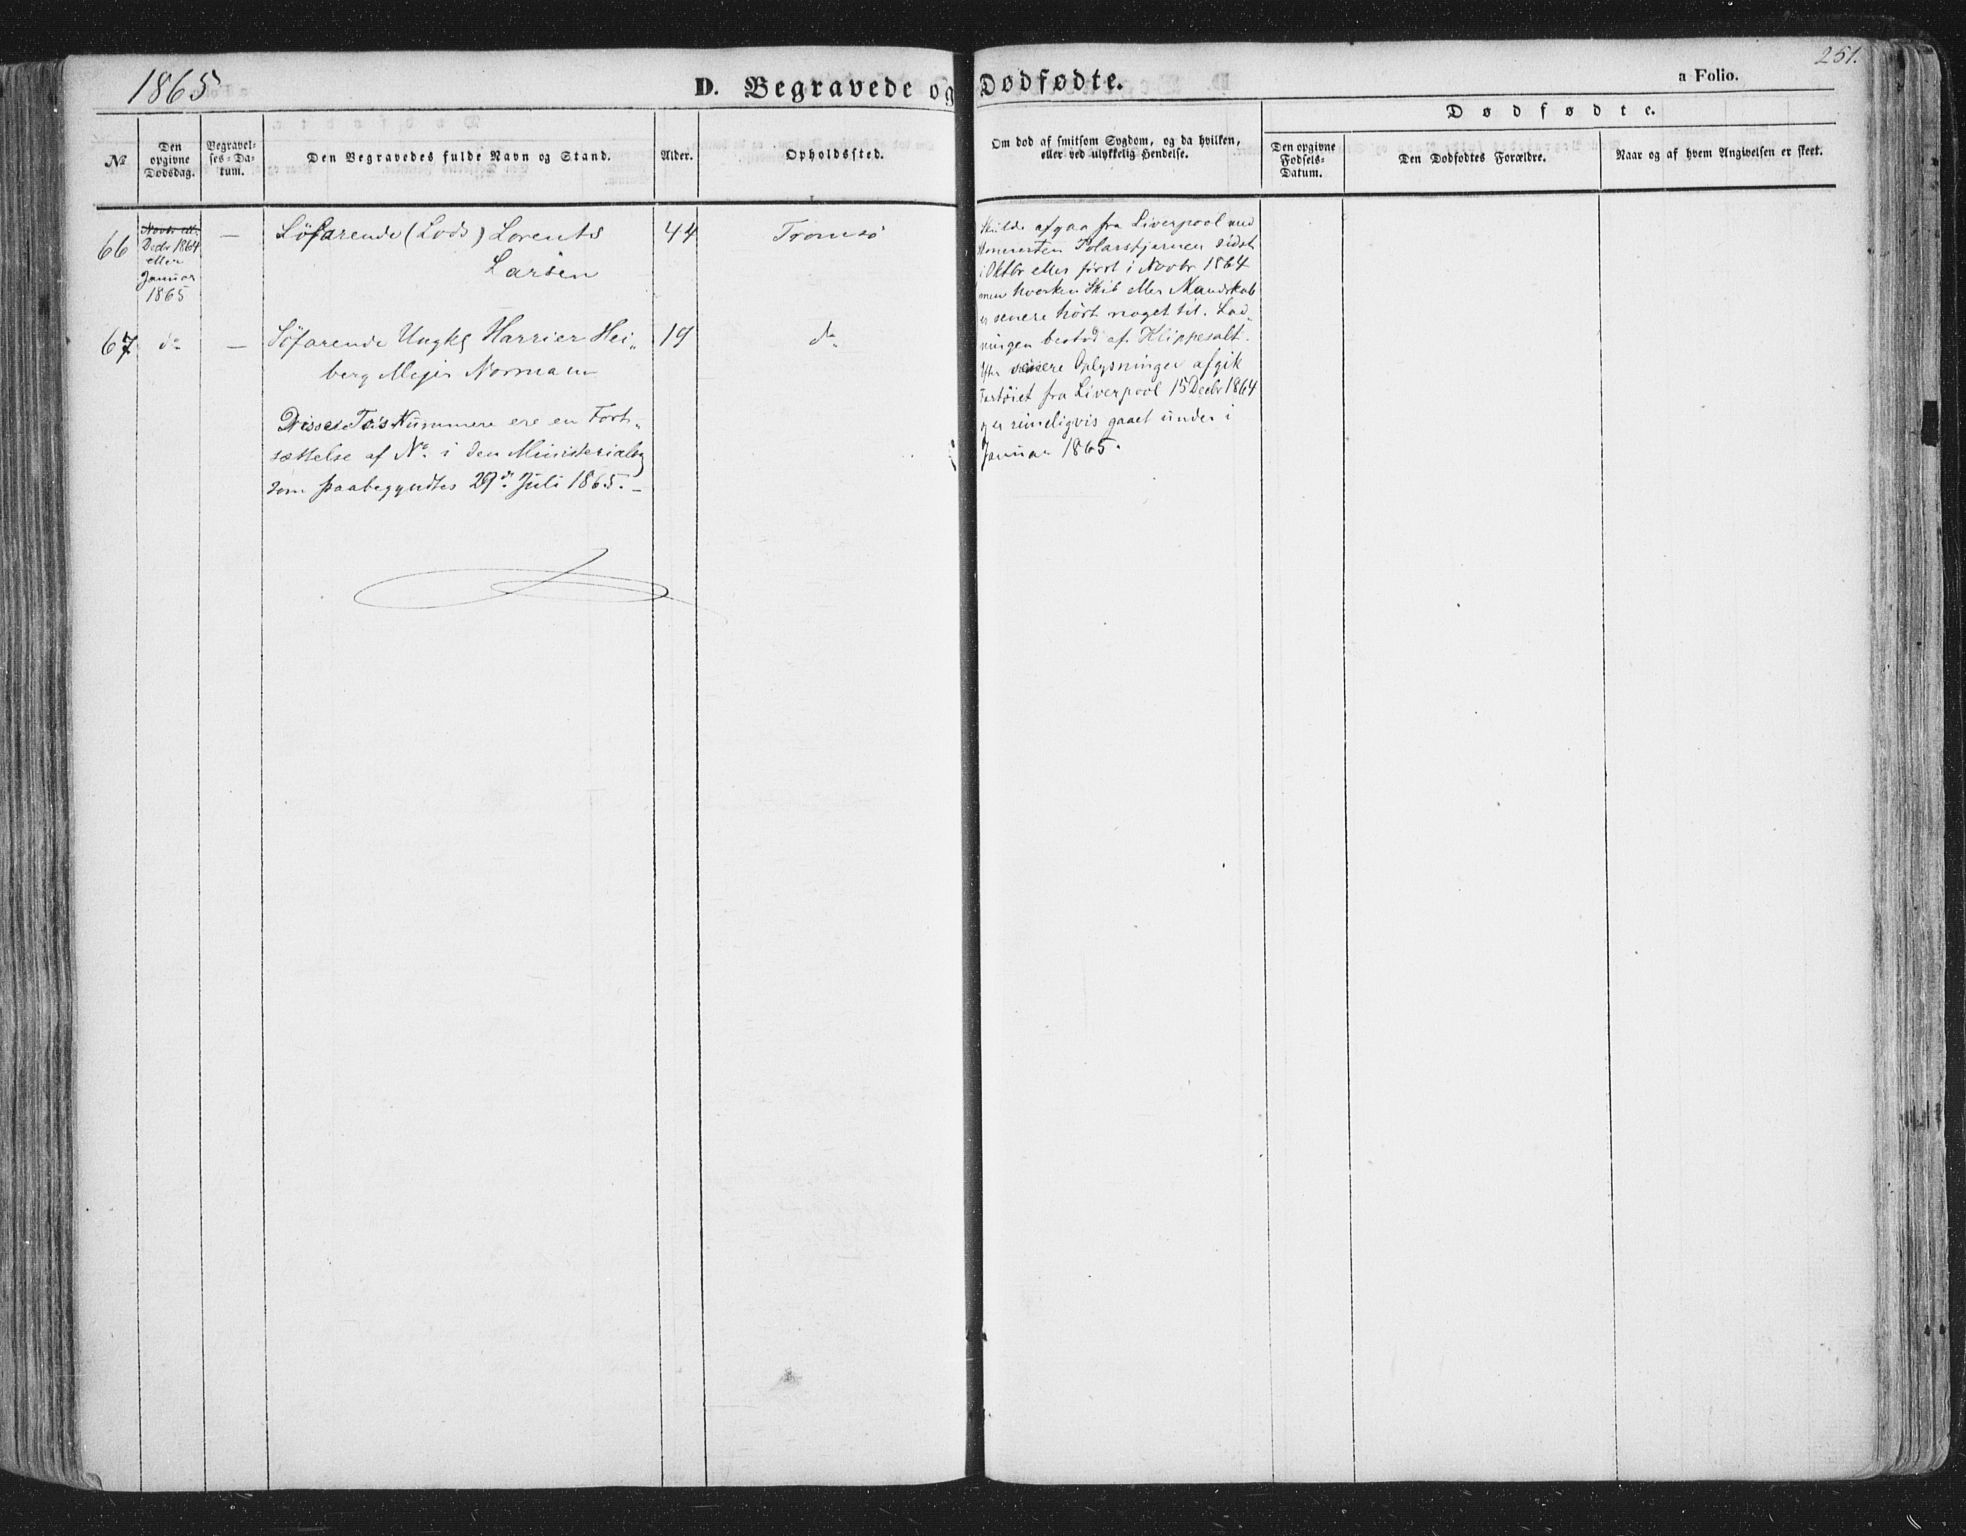 1865
D. Begravede og Dødfødte.
a Folio.
251.
№
Den opgivne Dødsdag.
Begravelses-Datum.
Den Begravedes fulde Navn og Stand.
Alder.
Opholdssted.
Om død af smitsom Sygdom, og da hvilken, eller ved ulykkelig Hendelse.
Dødfødte.
Den opgivne Fødsels-Datum.
Den Dødfødtes Forældre.
Naar og af hvem Angivelsen er skeet.
66
Decbr 1864
eller
Januar
1865
—
Søfarende (Lods) Lorents
Larsen
44
Tromsø
Skulde afgaa fra Liverpool med
Polarstjernen sidst
i Oktbr eller først i Novbr 1864
men hverken Skib eller Mandskab
er senere hørt noget til. Lad-
ningen bestod af Klippesalt.
Efter senere Oplysninger afgik
Fartøiet fra Liverpool 15 Decbr 1864
og er rimeligvis gaaet under i
Januar 1865.
67
do
—
Søfarende Ungk Harrier Hei-
berg Mejer Normann
19
do
Disse To's Nummere ere en Fort-
sættelse af No. i den Ministerialbog
som paabegyndtes 29de Juli 1865.-